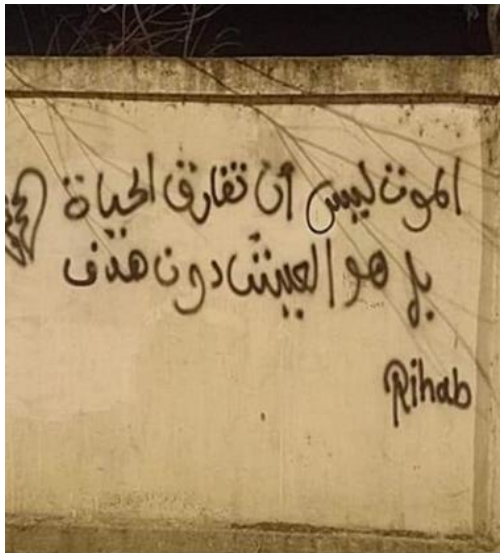 الموت ليس أن تفارق الحياة
بل هو العيش دون هدف
Rihab